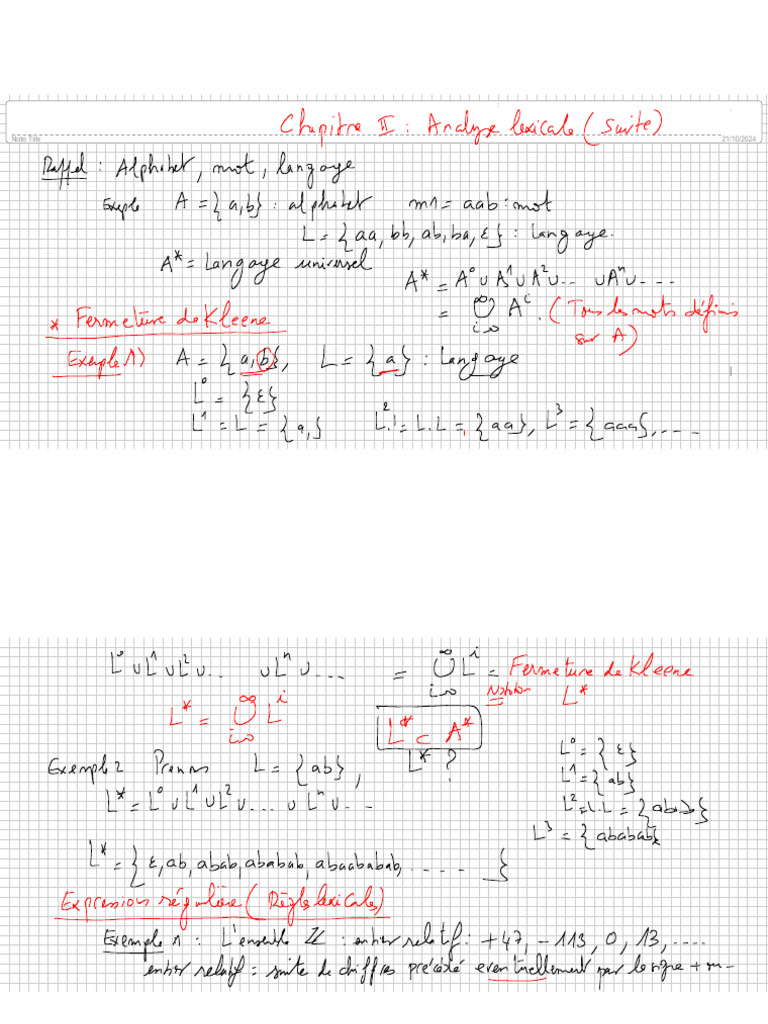 Chapitre II : Analyse lexicale (suite)
Note Title
21/10/2024
Rappel : Alphabet, mot, langage
Exple A = {a,b} : alphabet m1 = aab : mot
L = {aa, bb, ab, ba, ε} : langage.
A* = Langage universel
A* = A⁰ ∪ A¹ ∪ A² ∪ .. ∪ Aⁿ ∪ ...
= ∞ ∪ i=0 Aⁱ. (Tous les mots définis
sur A)
* Fermeture de Kleene
Exemple 1) A = {a,b}, L = {a} : langage
L⁰ = {ε}
L¹ = L = {a,} L² = L.L = {aa}, L³ = {aaa}, ....
L⁰ ∪ L¹ ∪ L² ∪ .. ∪ Lⁿ ∪ ... = ∞ ∪ i=0 Lⁱ = Fermeture de Kleene
Notation L*
L* = ∞ ∪ i=0 Lⁱ
L* ⊂ A*
Exemple 2 Prenons L = {ab}, L* ?
L* = L⁰ ∪ L¹ ∪ L² ∪ .... ∪ Lⁿ ∪ ...
L⁰ = {ε}
L¹ = {ab}
L² = L.L = {abab}
L³ = {ababab}
L* = {ε, ab, abab, ababab, abaababab, ..... }
Expressions régulière (Règles lexicales)
Exemple 1 : L'ensemble ℤ : entier relatif : +47, -113, 0, 13, ....
entier relatif = suite de chiffres précédé eventuellement par le signe + ou -